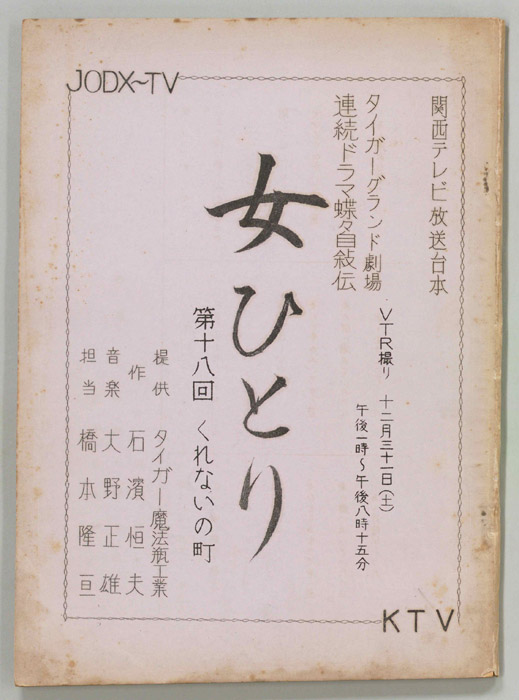 JODX~TV
関西テレビ放送台本
タイガーグランド劇場
連続ドラマ蝶々自敍伝
女ひとり
第十八回 くれないの町
VTR撮り 十二月三十一日(土)
午後一時~午後八時十五分
提供 タイガー魔法瓶工業
作 石濱恒夫
音楽 大野正雄
担当 橋本隆亘
KTV